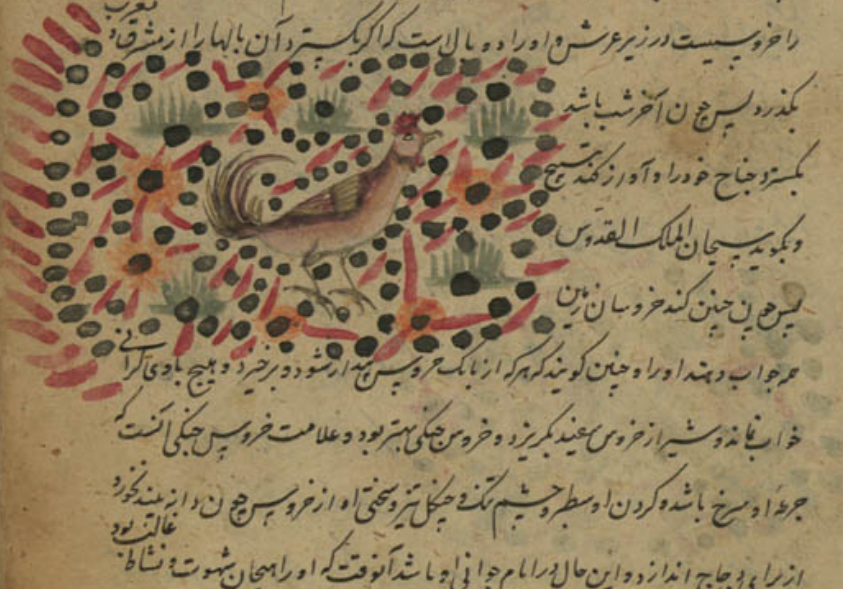 را خروسیست در زیر عرش و او را دو بال است که اگر بگسترد آن بالها را از مشرق و مغرب
بگذرد پس چون آخر شب باشد
بگسترد جناح خود را و آواز کند بتسبیح
و بگوید سبحان الملک القدوس
پس چون چنین کند خروسان زمین
همه جواب دهند او را و چنین گویند که هر که از بانک خروس بیدار شود و برخیزد و هیچ باوی کرانی
خواب نماند و شیر از خروس سفید بگریزد و خروس جنکی بهتر بود و علامت خروس جنکی آنست که
او سرخ باشد و کردن او سطبر و چشم تنک و چنکل تیز و سختی او از خروس چون دانه بیند نخورد
از برای دجاج اندازد و این حال در ایام جوانی او باشد آنوقت که او را هیجان شهوت و نشاط غالب بود